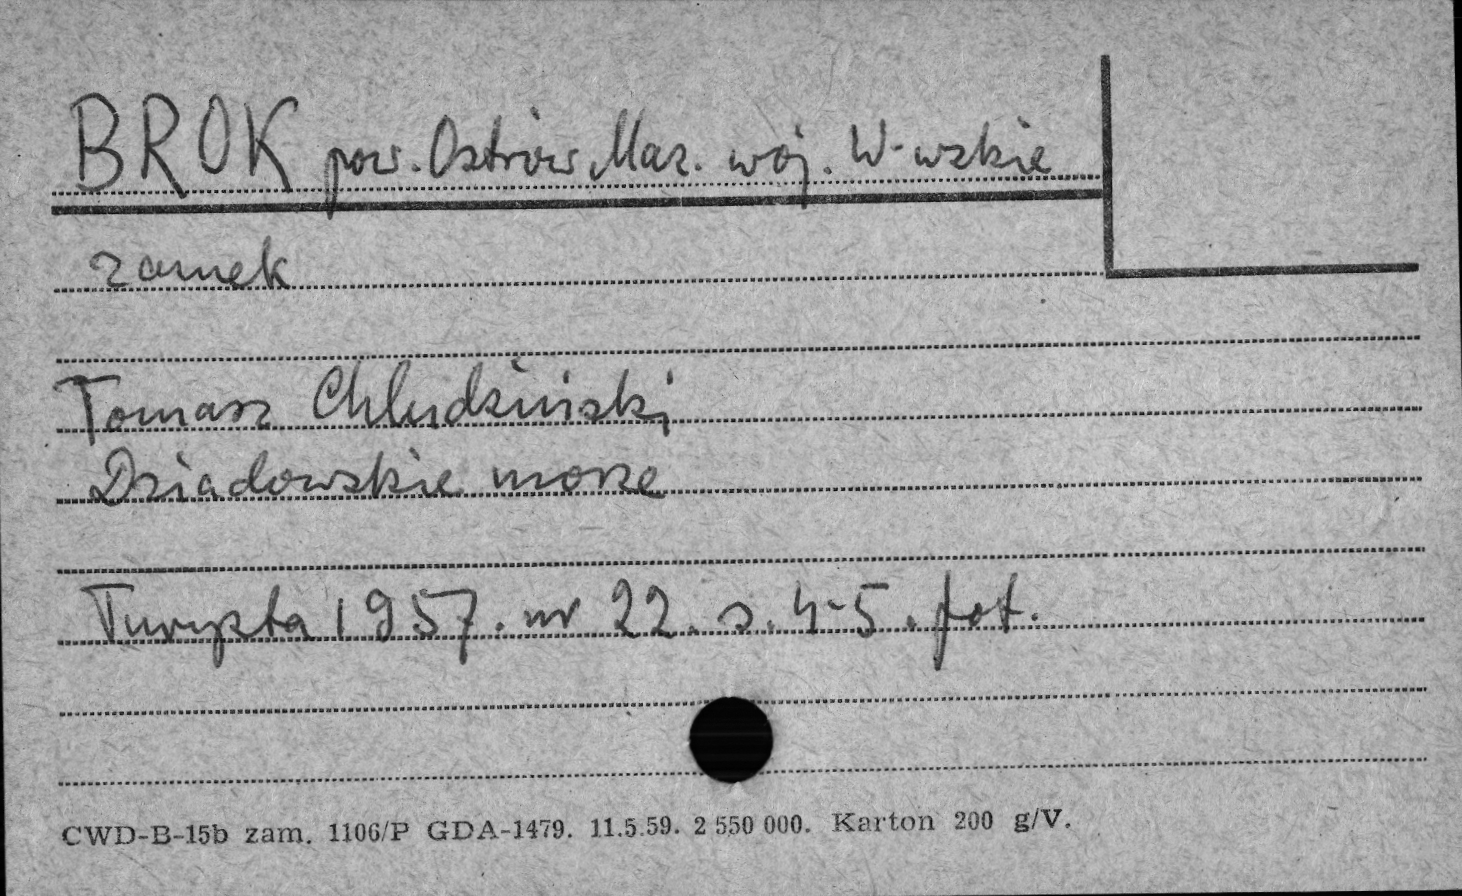 BROK pow. Ostrów Maz. woj. W-wskie
zamek
Tomasz Chludziński
Dziadowskie morze
Turysta 1957. nr 22. s. 4-5. fot.
CWD-B-15b zam. 1106/P GDA-1479. 11.5.59. 2 550 000. Karton 200 g/V.